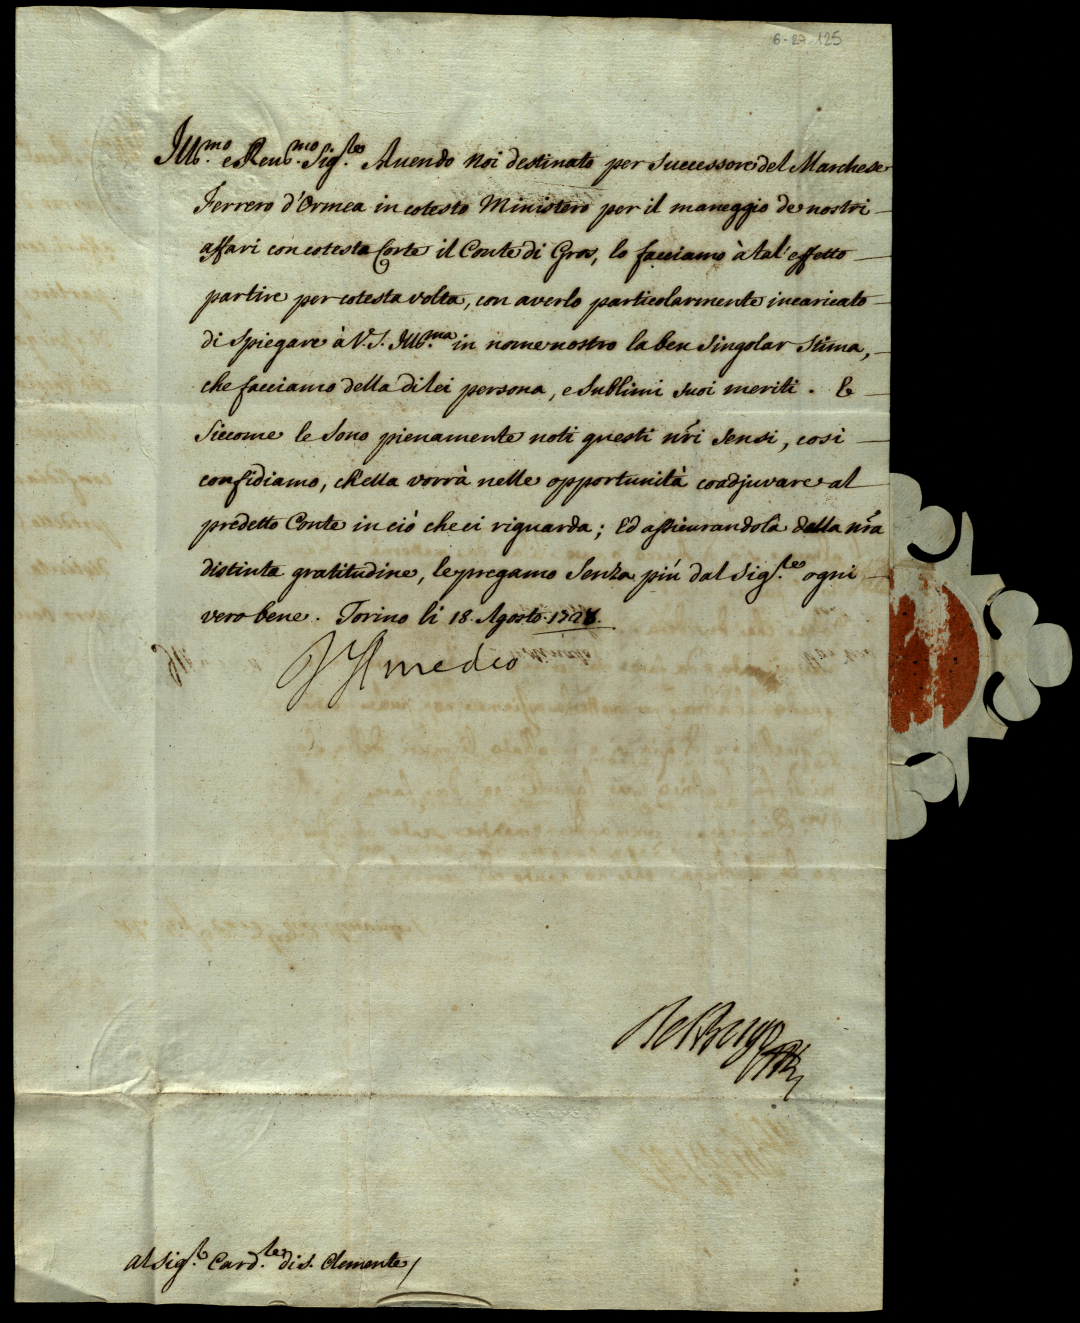 6-27-125
Ill.mo e Reu.mo Sig.re Auendo Noi destinato per Successore del Marchese
Ferrero d'Ormea in cotesto Ministero per il maneggio de nostri
affari con cotesta Corte il Conte di Gros, lo facciamo à tal'effetto
partire per cotesta volta, con averlo particolarmente incaricato
di spiegare à V. S. Ill.ma in nome nostro la ben singolar stima,
che facciamo della di lei persona, e sublimi suoi meriti. E
siccome le sono pienamente noti questi nri sensi, così
confidiamo, ch'ella vorrà nelle opportunità coadjuvare al
predetto Conte in ciò che ci riguarda; Ed assicurandola della nra
distinta gratitudine, le pregamo senza più dal Sig.re ogni
vero bene. Torino li 18. Agosto 1728.
V Amedeo
Del Borgo
al Sig.r Card.le di S. Clemente